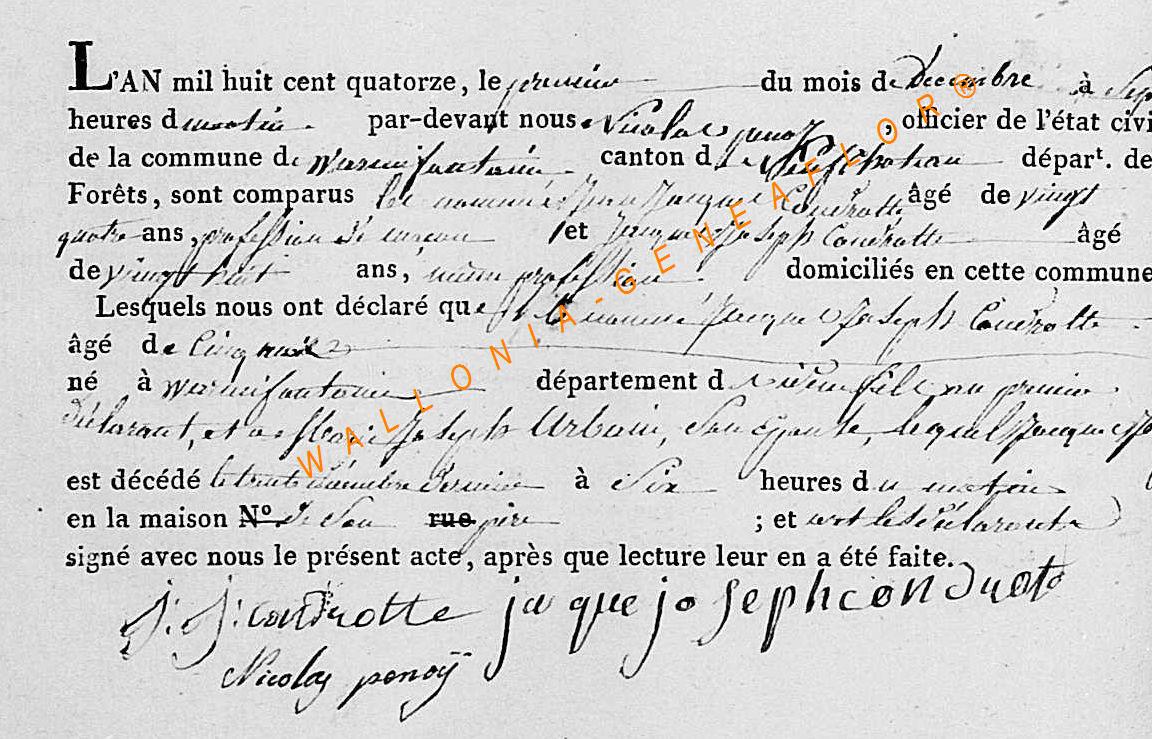 L'AN mil huit cent quatorze, le premier du mois de Décembre à Sep
heures du matin. par-devant nous Nicolas penoÿ, officier de l'état civi
de la commune de warmifontaine canton de Neufchateau départ. de
Forêts, sont comparus les nommés Jean Jacque Condrotte âgé de vingt
quatre ans, profession de
et Jacque Joseph Condrotte âgé
de vingt huit ans, même profession. domiciliés en cette commune
Lesquels nous ont déclaré que le nommé Jacque Joseph Condrotte
âgé de Cinq mois
né à warmifontaine département fils au premier
déclarant, et a Marie Joseph Urbain, Son Epouse, lequel Jacque Jo
est décédé le trente dernier à Six heures du matin
en la maison N° de Son rue père ; et ont les déclarants
signé avec nous le présent acte, après que lecture leur en a été faite.
J: J: condrotte jaque joseph conduote
Nicolas penoÿ
WALLONIA-GENEAFLOR®